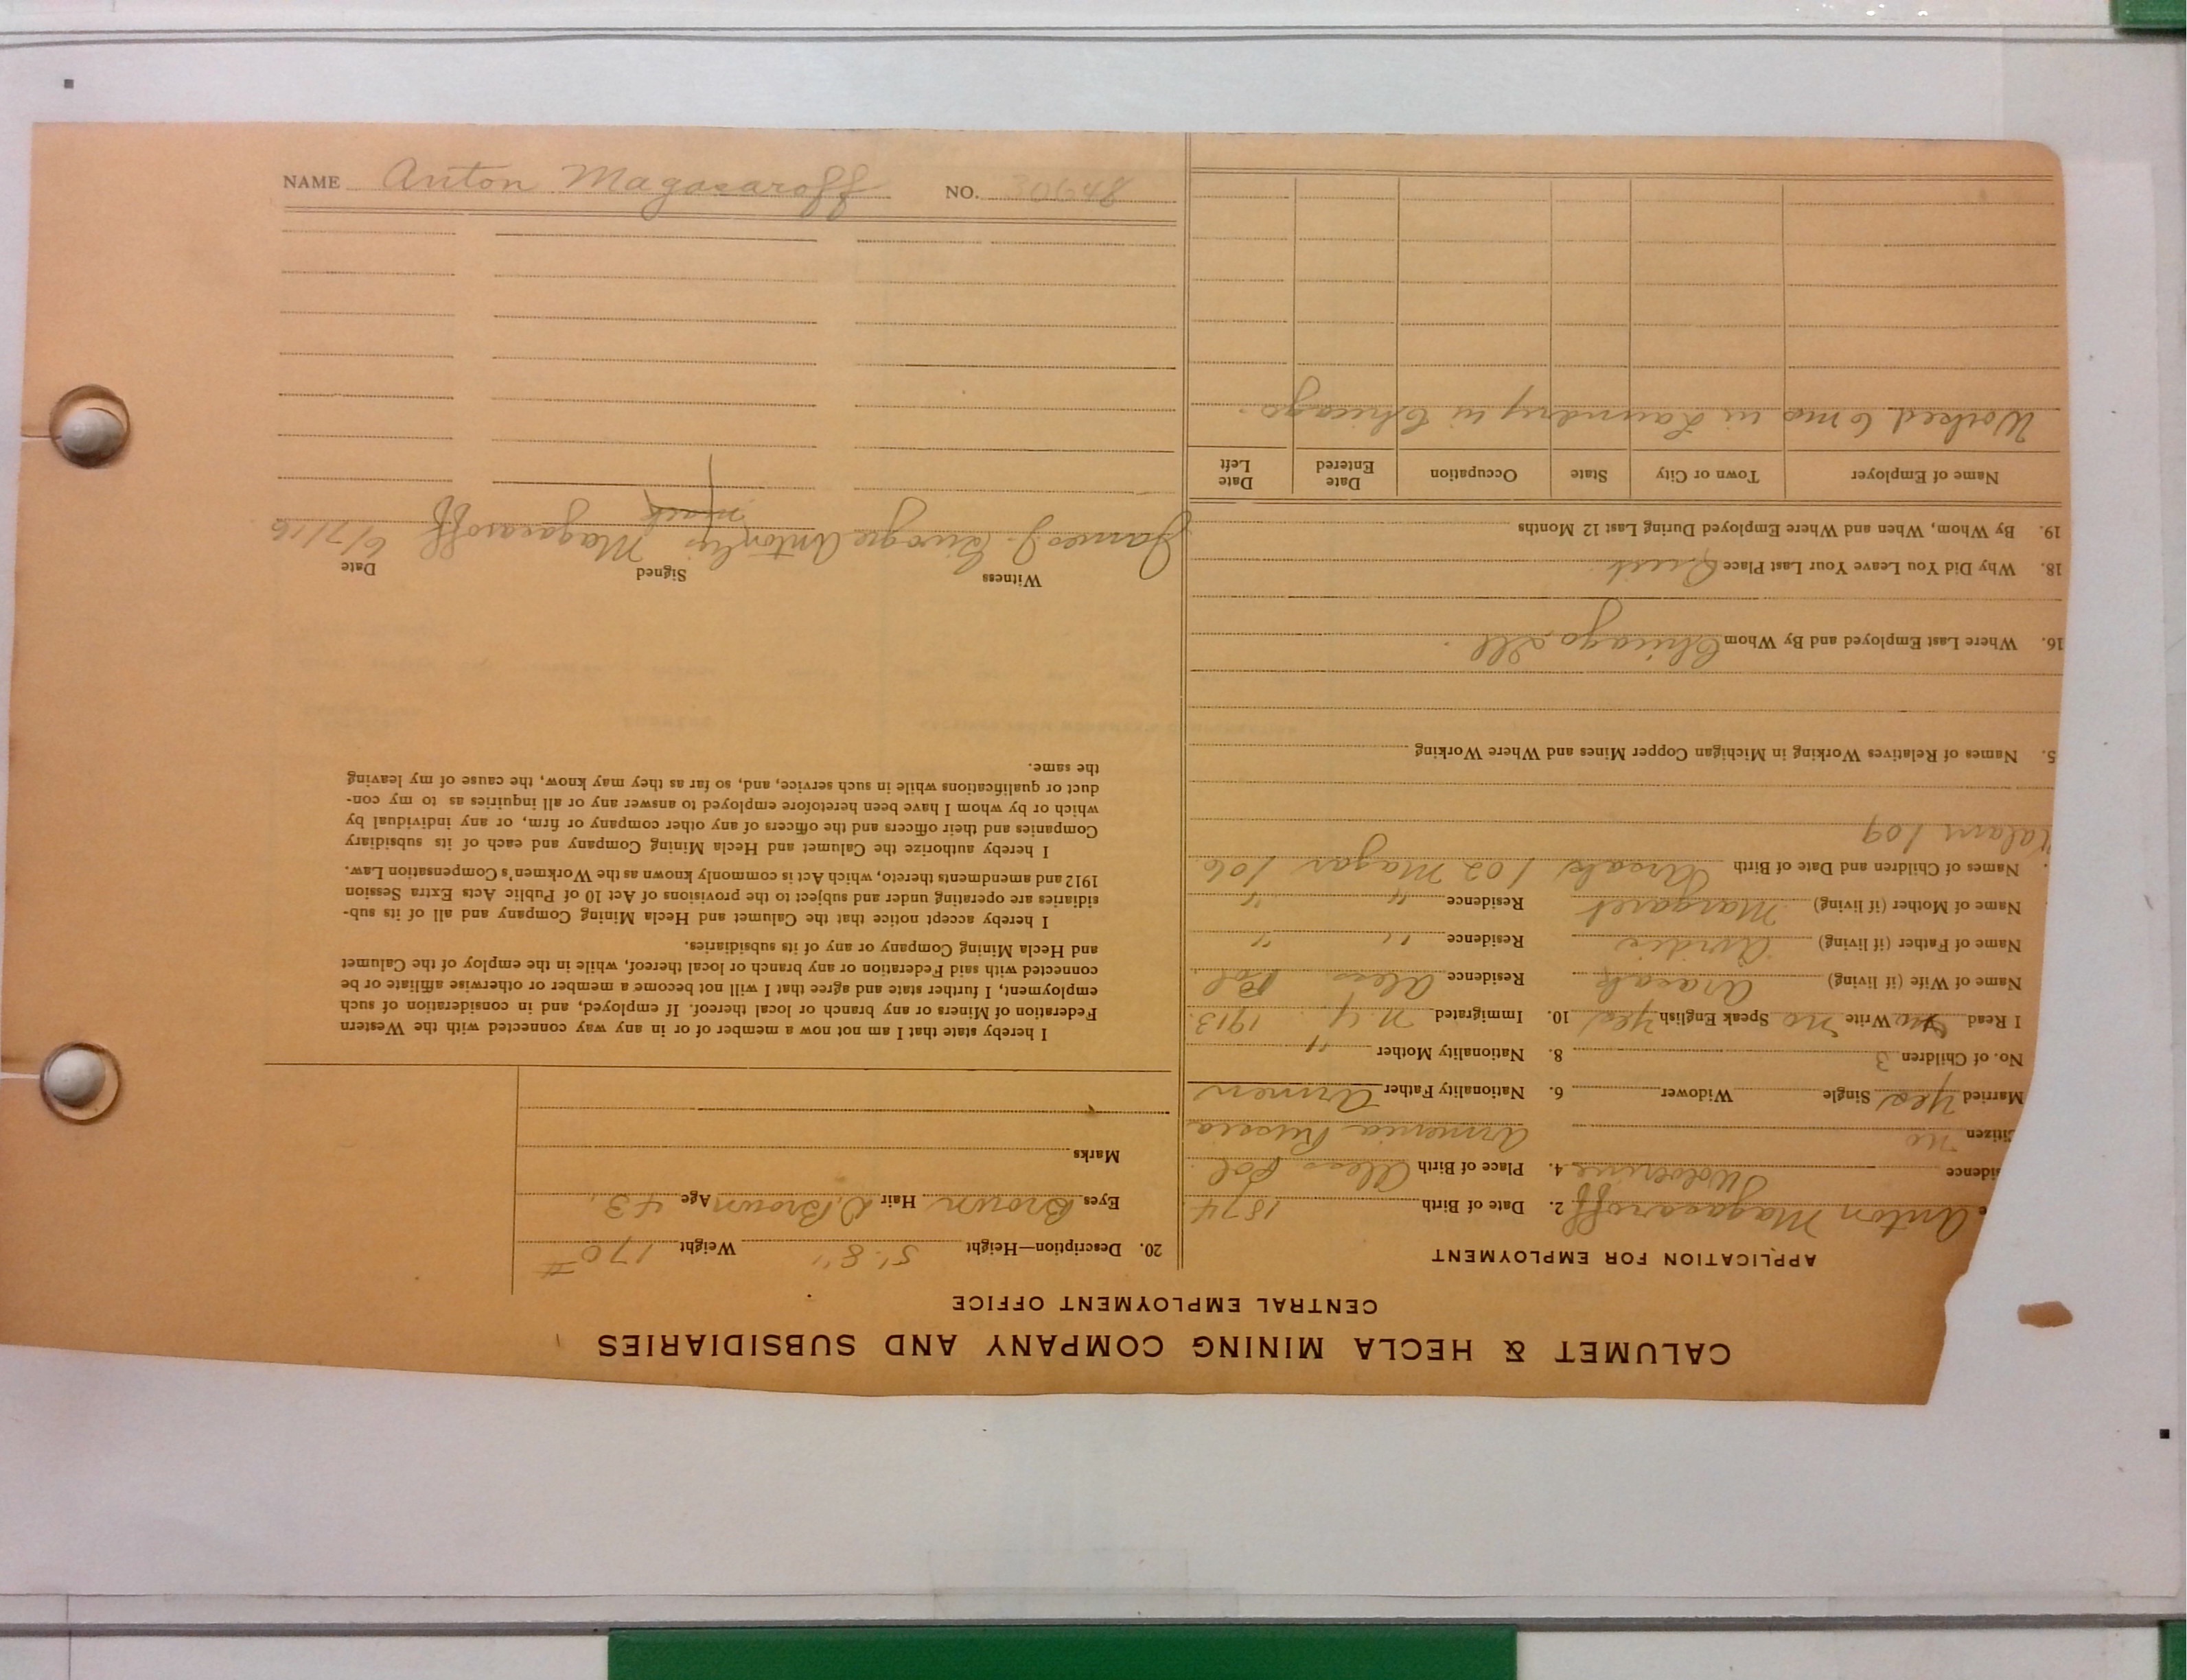 CALUMET & HECLA MINING COMPANY AND SUBSIDIARIES
CENTRAL EMPLOYMENT OFFICE
APPLICATION FOR EMPLOYMENT
e Anton Magasaroff 2. Date of Birth 1874
idence Wolverine 4. Place of Birth Alex Pol
itizen no Armenia Russia
Married Yes Single Widower 6. Nationality Father Armen
No. of Children 3 8. Nationality Mother "
I Read no Write no Speak English Yes 10. Immigrated N.Y. 1913
Name of Wife (if living) Residence Alex Pol
Name of Father (if living) Residence " "
Name of Mother (if living) Margaret Residence " "
Names of Children and Date of Birth 102 Magar 106
109
5. Names of Relatives Working in Michigan Copper Mines and Where Working
16. Where Last Employed and By Whom Chicago Ill.
18. Why Did You Leave Your Last Place Quit
19. By Whom, When and Where Employed During Last 12 Months
Name of Employer Town or City State Occupation Date Entered Date Left
Worked 6 mo in Laundry in Chicago.
20. Description—Height 5'.8" Weight 170#
Eyes Brown Hair D. Brown Age 43.
Marks
I hereby state that I am not now a member of or in any way connected with the Western
Federation of Miners or any branch or local thereof. If employed, and in consideration of such
employment, I further state and agree that I will not become a member or otherwise affiliate or be
connected with said Federation or any branch or local thereof, while in the employ of the Calumet
and Hecla Mining Company or any of its subsidiaries.
I hereby accept notice that the Calumet and Hecla Mining Company and all of its sub-
sidiaries are operating under and subject to the provisions of Act 10 of Public Acts Extra Session
1912 and amendments thereto, which Act is commonly known as the Workmen's Compensation Law.
I hereby authorize the Calumet and Hecla Mining Company and each of its subsidiary
Companies and their officers and the officers of any other company or firm, or any individual by
which or by whom I have been heretofore employed to answer any or all inquiries as to my con-
duct or qualifications while in such service, and, so far as they may know, the cause of my leaving
the same.
Witness Signed Date
James J. Anton his Magasaroff 6/7/16
mark
NAME Anton Magasaroff NO. 30648